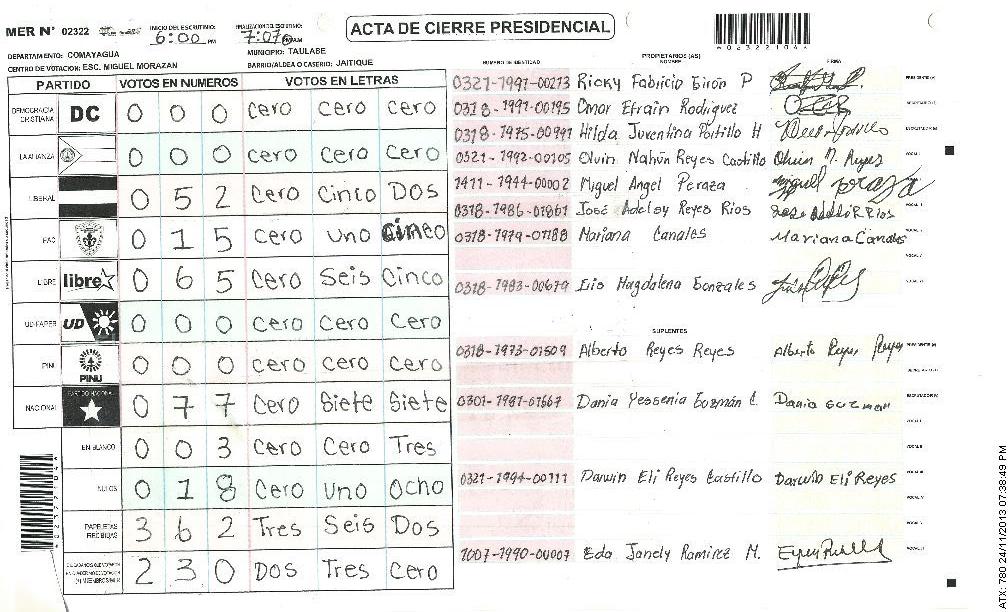 MER N° 02322
INICIO DEL ESCRUTINIO: 6:00 PM
FINALIZACION DEL ESCRUTINIO: 7:07 PM
ACTA DE CIERRE PRESIDENCIAL
DEPARTAMENTO: COMAYAGUA
MUNICIPIO: TAULABE
CENTRO DE VOTACION: ESC. MIGUEL MORAZAN
BARRIO/ALDEA O CASERIO: JAITIQUE
PARTIDO VOTOS EN NUMEROS VOTOS EN LETRAS
DEMOCRACIA CRISTIANA DC 0 0 0 Cero Cero Cero
LA ALIANZA 0 0 0 Cero Cero Cero
LIBERAL 0 5 2 Cero Cinco Dos
PAC 0 1 5 Cero Uno Cinco
LIBRE libre 0 6 5 Cero Seis Cinco
UD-FAPER UD 0 0 0 Cero Cero Cero
PINU PINU 0 0 0 Cero Cero Cero
NACIONAL PARTIDO NACIONAL 0 7 7 Cero Siete Siete
EN BLANCO 0 0 3 Cero Cero Tres
NULOS 0 1 8 Cero Uno Ocho
PAPELETAS RECIBIDAS 3 6 2 Tres Seis Dos
2 3 0 Dos Tres Cero
NUMERO DE IDENTIDAD PROPIETARIOS (AS) NOMBRE FIRMA
0321-1991-00273 Ricky Fabricio Giron P
0318-1991-00195 Omar Efrain Rodriguez
0318-1975-00991 Hilda Juventina Portillo H
0321-1992-00105 Olvin Nahún Reyes Castillo Olvin N. Reyes
1411-1944-00002 Miguel Angel Peraza Miguel Peraza
0318-1986-01861 José Adelsy Reyes Rios
0318-1979-01188 Mariana Canales Mariana Canales
0318-1983-00679 Iris Magdalena Gonzales
SUPLENTES
0318-1973-01509 Alberto Reyes Reyes Alberto Reyes Reyes
0301-1981-01667 Dania Yessenia Guzmán C. Dania Guzman
0321-1994-00111 Darwin Eli Reyes Castillo Darwin Eli Reyes
1007-1990-00007 Eda Janely Ramirez M.
ATX: 780 24/11/2013 07:38:49 PM